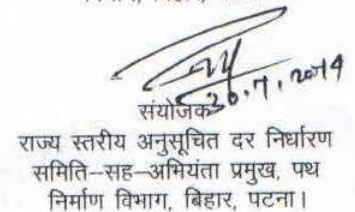 संयोजक 30.7.2014
राज्य स्तरीय अनुसूचित दर निर्धारण
समिति–सह–अभियंता प्रमुख, पथ
निर्माण विभाग, बिहार, पटना।